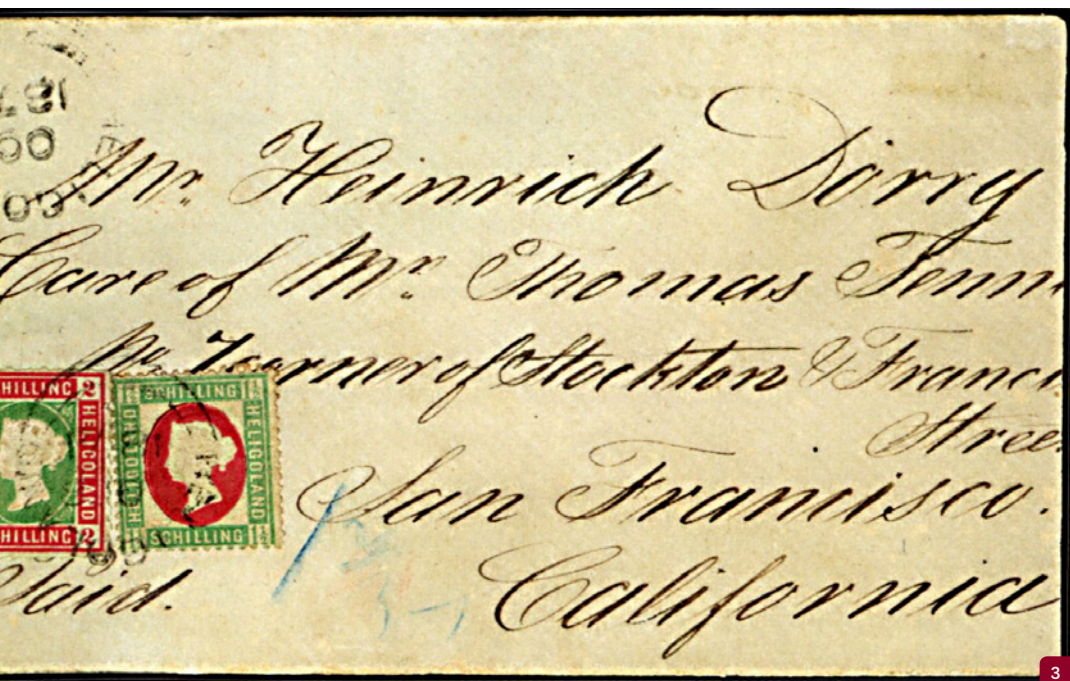 Mr. Heinrich Dorry
Care of Mr. Thomas Tenn
Corner of Stockton & Franci
Stree
San Francisco.
California
Paid.
HILLING 2
HELIGOLAND
HILLING 2
SCHILLING
HELIGOLAND
HELIGOLAND
SCHILLING
3